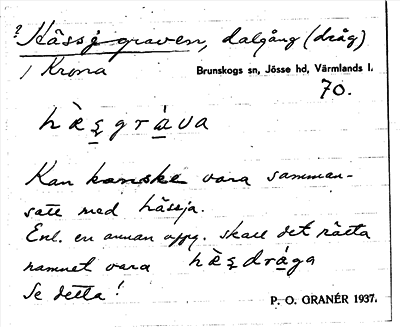 ? Hässjegraven, dalgång (dråg)
/ Krona Brunskogs sn, Jösse hd, Värmlands l.
70.
Kan kanske vara samman-
satt med hässja.
Enl. en annan uppg. skall det rätta
namnet vara
Se detta!
P. O. GRANÉR 1937.